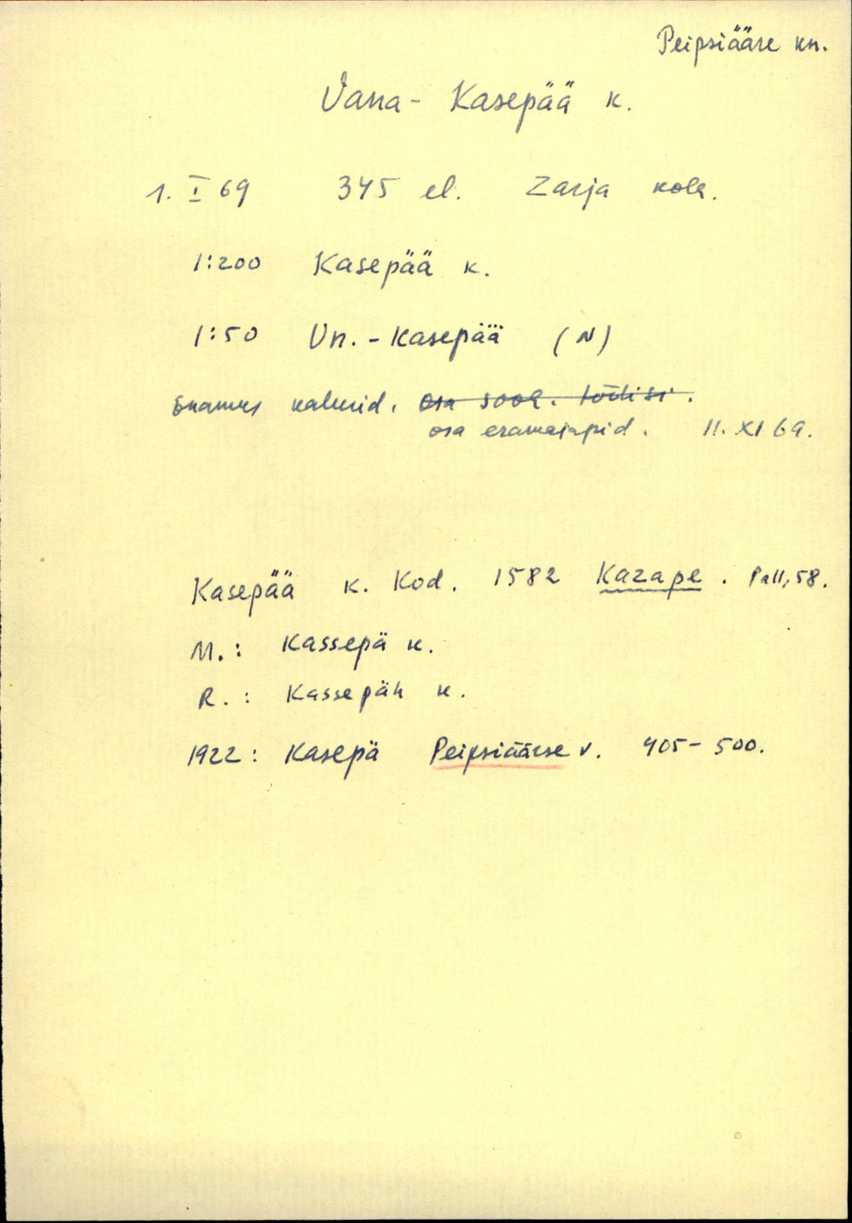 Peipsiääre kn.
Vana-Kasepää k.
1. I 69 345 el. Zarja kolh.
1:200 Kasepää k.
1:50 Vn.-Kasepää (N)
Enamus kalurid. osa sovh. töölisi.
osa eramajapid. 11. XI 69.
Kasepää k. Kod. 1582 Kazape. Pall, 58.
M.: Kassepä k.
R.: Kassepäh k.
1922: Kasepä Peipsiäärse v. 405-500.